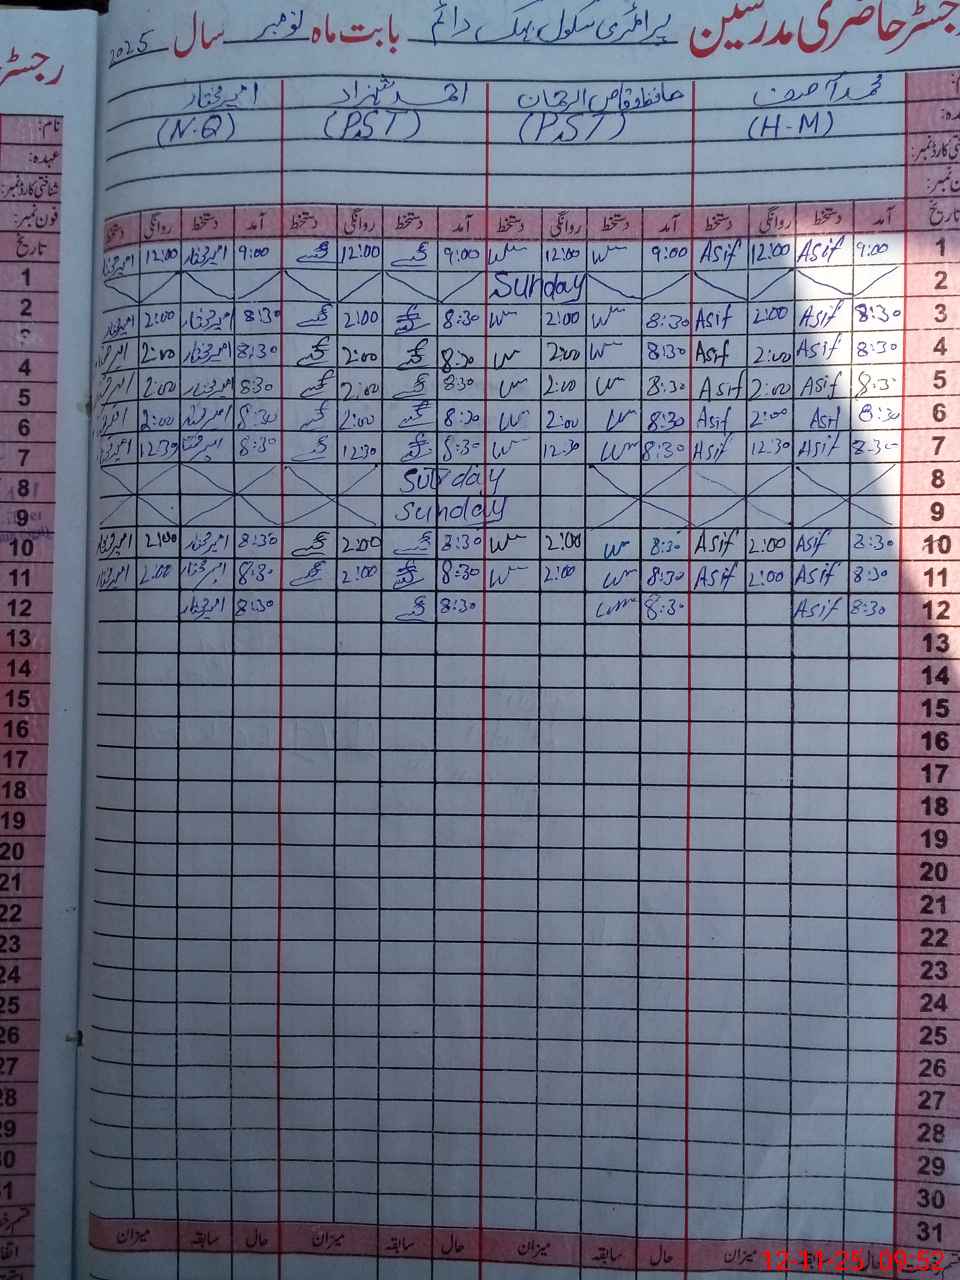 رجسٹر حاضری مدرسین پرائمری سکول بابت ماہ نومبر سال 2025
محمد آصف حافظ وقاص الرحمان احمد شہزاد امیر مختار
(H-M) (PST) (PST) (N.Q)
تاریخ آمد دستخط روانگی دستخط آمد دستخط روانگی دستخط آمد دستخط روانگی دستخط آمد دستخط روانگی دستخط
1 9:00 Asif 12:00 Asif 9:00 12:00 9:00 12:00 9:00 امیر مختار 12:00 امیر مختار
2 Sunday
3 8:30 Asif 2:00 Asif 8:30 2:00 8:30 2:00 8:30 امیر مختار 2:00 امیر مختار
4 8:30 Asif 2:00 Asif 8:30 2:00 8:30 2:00 8:30 امیر مختار 2:00 امیر مختار
5 8:30 Asif 2:00 Asif 8:30 2:00 8:30 2:00 8:30 امیر مختار 2:00 امیر مختار
6 8:30 Asif 2:00 Asif 8:30 2:00 8:30 2:00 8:30 امیر مختار 2:00 امیر مختار
7 8:30 Asif 12:30 Asif 8:30 12:30 8:30 12:30 8:30 امیر مختار 12:30 امیر مختار
8
9 Sunday
10 8:30 Asif 2:00 Asif 8:30 2:00 8:30 2:00 8:30 امیر مختار 2:00 امیر مختار
11 8:30 Asif 2:00 Asif 8:30 2:00 8:30 2:00 8:30 امیر مختار 2:00 امیر مختار
12 8:30 Asif 8:30 8:30 8:30 امیر مختار
13
14
15
16
17
18
19
20
21
22
23
24
25
26
27
28
29
30
31
حال سابقہ میزان حال سابقہ میزان حال سابقہ میزان حال سابقہ میزان
12-11-25 09:52
رجسٹر
نام:
عہدہ:
شناختی کارڈ نمبر:
فون نمبر:
تاریخ
1
2
3
4
5
6
7
8
9
10
11
12
13
14
15
16
17
18
19
20
21
22
23
24
25
26
27
28
29
30
31